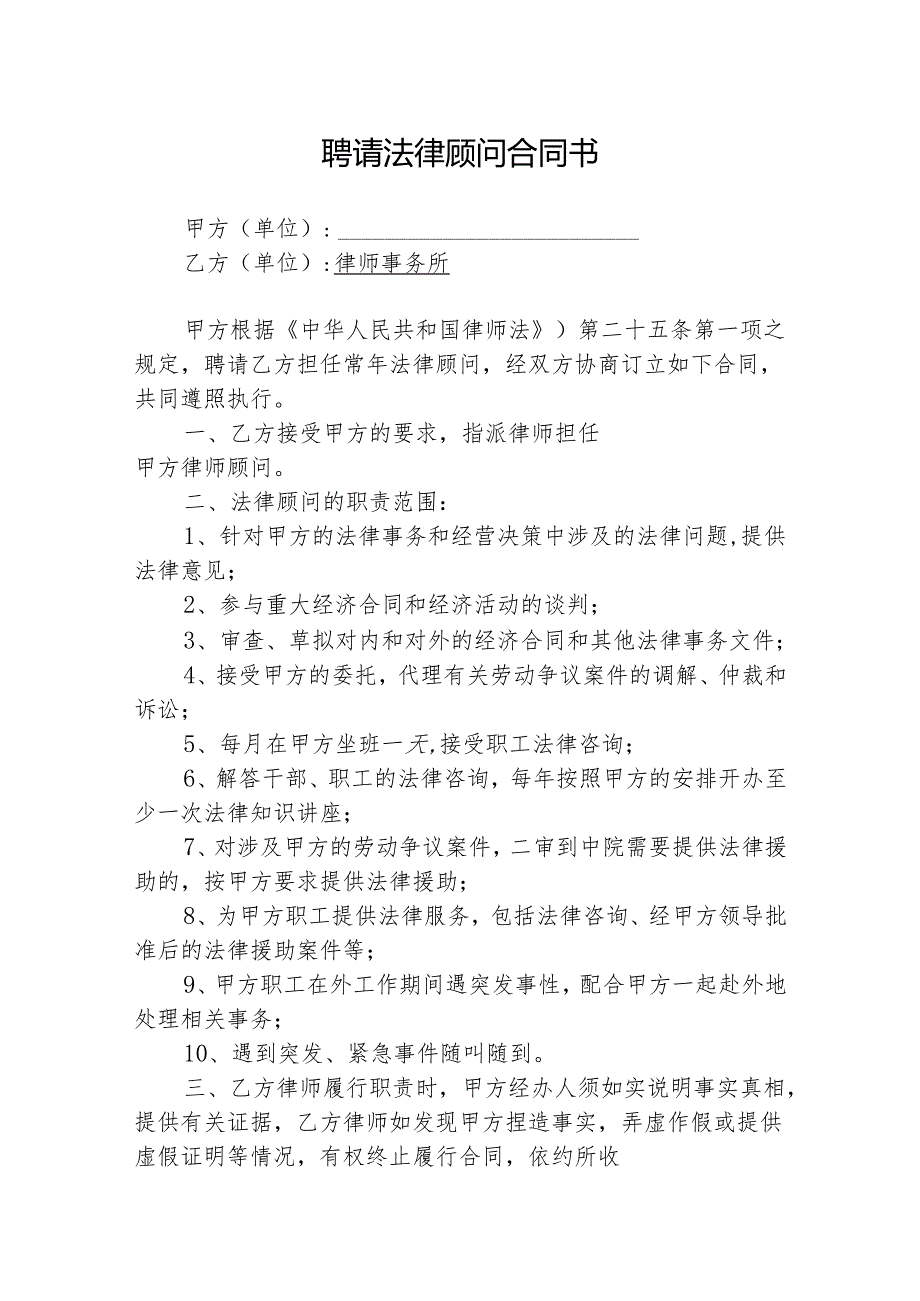 聘请法律顾问合同书
甲方（单位）：__________________________
乙方（单位）:律师事务所
甲方根据《中华人民共和国律师法》）第二十五条第一项之
规定，聘请乙方担任常年法律顾问，经双方协商订立如下合同，
共同遵照执行。
一、乙方接受甲方的要求，指派律师担任
甲方律师顾问。
二、法律顾问的职责范围：
1、针对甲方的法律事务和经营决策中涉及的法律问题,提供
法律意见；
2、参与重大经济合同和经济活动的谈判；
3、审查、草拟对内和对外的经济合同和其他法律事务文件；
4、接受甲方的委托，代理有关劳动争议案件的调解、仲裁和
诉讼；
5、每月在甲方坐班一天,接受职工法律咨询；
6、解答干部、职工的法律咨询，每年按照甲方的安排开办至
少一次法律知识讲座；
7、对涉及甲方的劳动争议案件，二审到中院需要提供法律援
助的，按甲方要求提供法律援助；
8、为甲方职工提供法律服务，包括法律咨询、经甲方领导批
准后的法律援助案件等；
9、甲方职工在外工作期间遇突发事性，配合甲方一起赴外地
处理相关事务；
10、遇到突发、紧急事件随叫随到。
三、乙方律师履行职责时，甲方经办人须如实说明事实真相，
提供有关证据，乙方律师如发现甲方捏造事实，弄虚作假或提供
虚假证明等情况，有权终止履行合同，依约所收